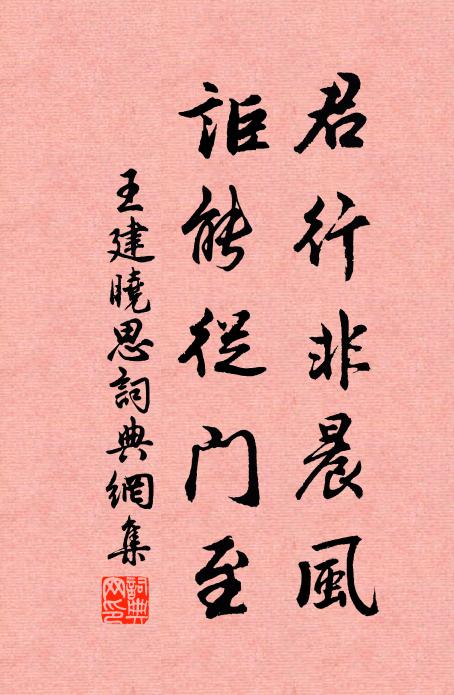 君行非晨風
詎能從门至
王建曉思詞典網集
詞典
网印